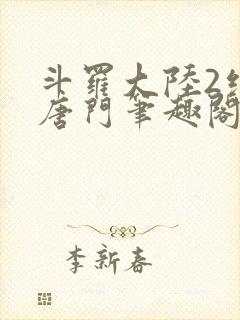 斗羅大陸2絕
唐門筆趣閣
李新春